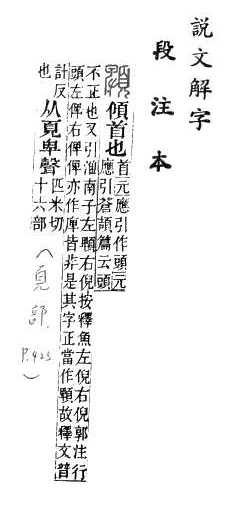 說文解字
段注本
傾首也首元應引作頭元
應引蒼頡篇云頭
不正也又引淮南子左䫌右倪按釋魚左倪右倪郭注行
頭左俾右俾俾亦作庳皆非是其字正當作䫌故釋文普
計反
也
从頁卑聲匹米切
十六部
(頁部 P.423)